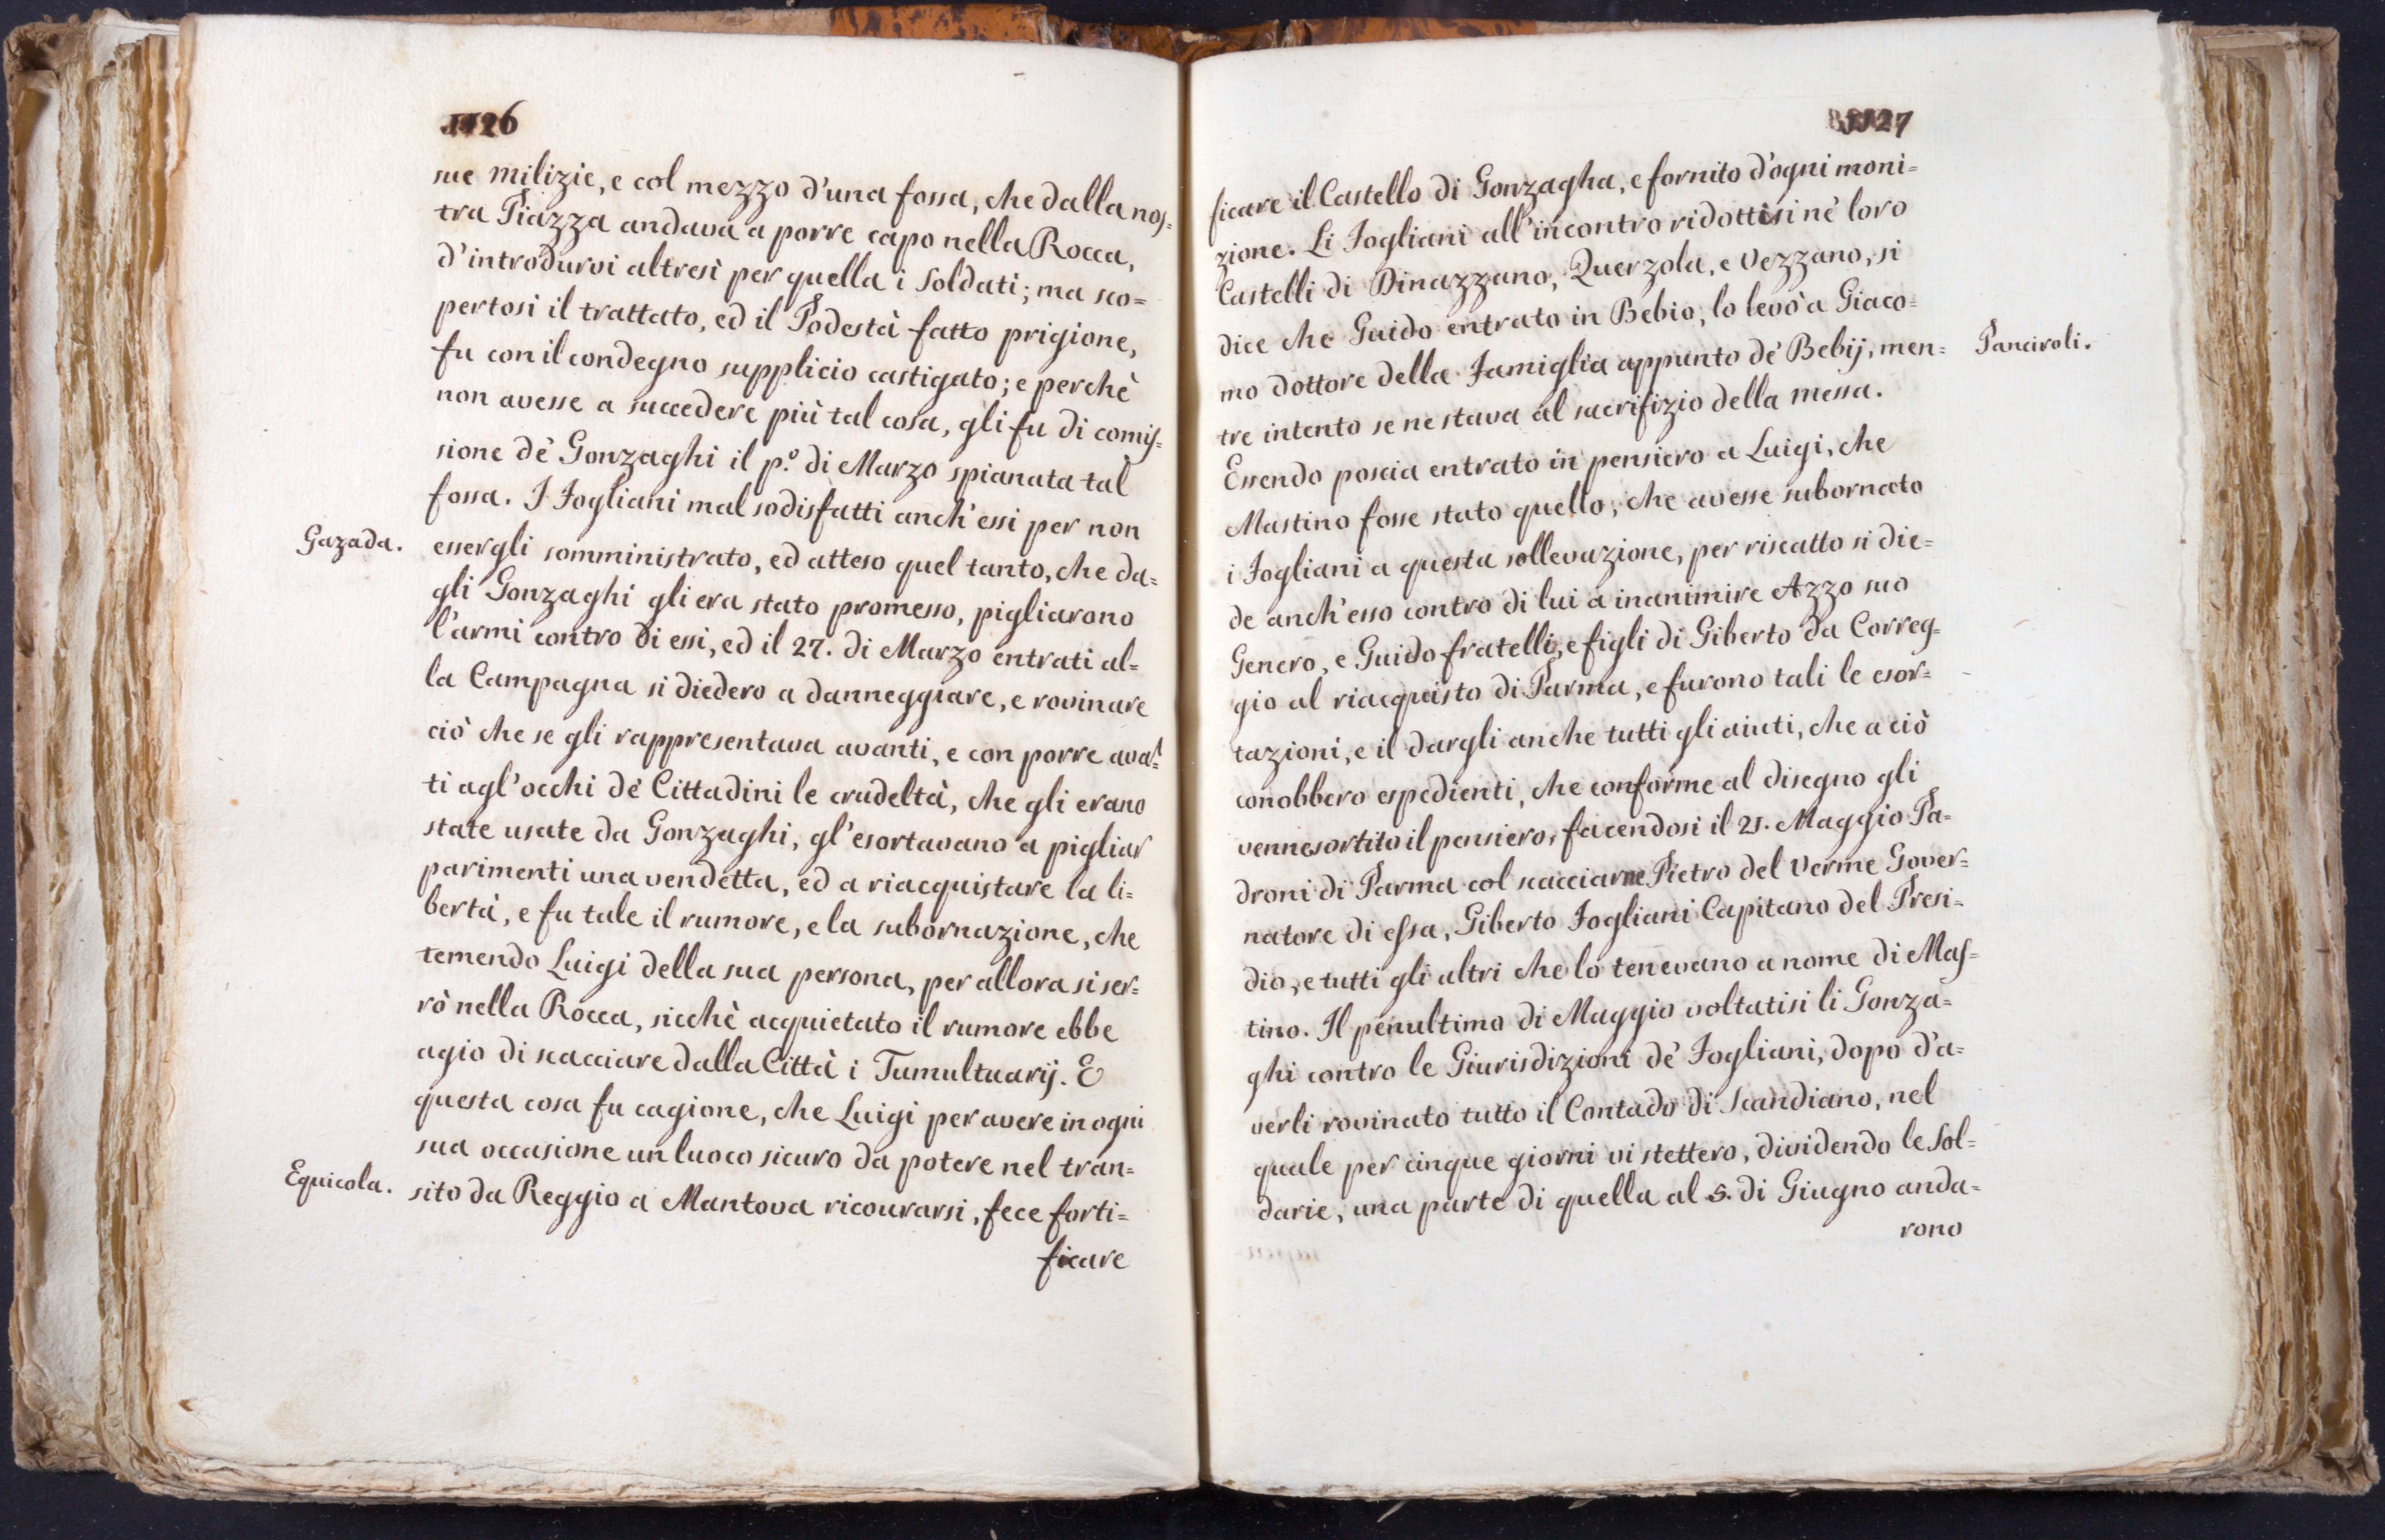 1126
sue milizie, e col mezzo d'una fossa, che dalla nos=
tra Piazza andava a porre capo nella Rocca,
d'introdurvi altresì per quella i soldati; ma sco=
pertosi il trattato, ed il Podestà fatto prigione,
fu con il condegno supplicio castigato; e perchè
non avesse a succedere più tal cosa, gli fu di comis=
sione dè Gonzaghi il p.º di Marzo spianata tal
fossa. I Fogliani mal sodisfatti anch'essi per non
Gazada.
essergli somministrato, ed atteso quel tanto, che da=
gli Gonzaghi gli era stato promesso, pigliarono
l'armi contro di essi, ed il 27. di Marzo entrati al=
la Campagna si diedero a danneggiare, e rovinare
ciò che se gli rappresentava avanti, e con porre avã=
ti agl'occhi dè Cittadini le crudeltà, che gli erano
state usate da Gonzaghi, gl'esortavano a pigliar
parimenti una vendetta, ed a riacquistare la li=
bertà, e fu tale il rumore, e la subornazione, che
temendo Luigi della sua persona, per allora si ser=
rò nella Rocca, sicchè acquietato il rumore ebbe
agio di scacciare dalla Città i Tumultuarij. E
questa cosa fu cagione, che Luigi per avere in ogni
sua occasione un luoco sicuro da potere nel tran=
Equicola.
sito da Reggio a Mantova ricourarsi, fece forti=
ficare
1127
ficare il Castello di Gonzagha, e fornito d'ogni moni=
zione. Li Fogliani all'incontro ridottisi nè loro
Castelli di Dinazzano, Querzola, e Vezzano, si
dice che Guido entrato in Bebio, lo levò a Giaco=
mo dottore della Famiglia appunto dè Bebij, men=
Panciroli.
tre intento se ne stava al sacrifizio della messa.
Essendo poscia entrato in pensiero a Luigi, che
Mastino fosse stato quello, che avesse subornato
i Fogliani a questa sollevazione, per riscatto si die=
de anch'esso contro di lui a inanimire Azzo suo
Genero, e Guido fratelli, e figli di Giberto da Correg=
gio al riacquisto di Parma, e furono tali le esor=
tazioni, e il dargli anche tutti gli aiuti, che a ciò
conobbero espedienti, che conforme al disegno gli
venne sortito il pensiero, facendosi il 21. Maggio Pa=
droni di Parma col scacciarne Pietro del Verme Gover=
natore di essa, Giberto Fogliani Capitano del Presi=
dio, e tutti gli altri che lo tenevano a nome di Mas=
tino. Il penultimo di Maggio voltatisi li Gonza=
ghi contro le Giurisdizioni dè Fogliani, dopo d'a=
verli rovinato tutto il Contado di Scandiano, nel
quale per cinque giorni vi stettero, dividendo le Sol=
darie, una parte di quella al 5. di Giugno anda=
rono